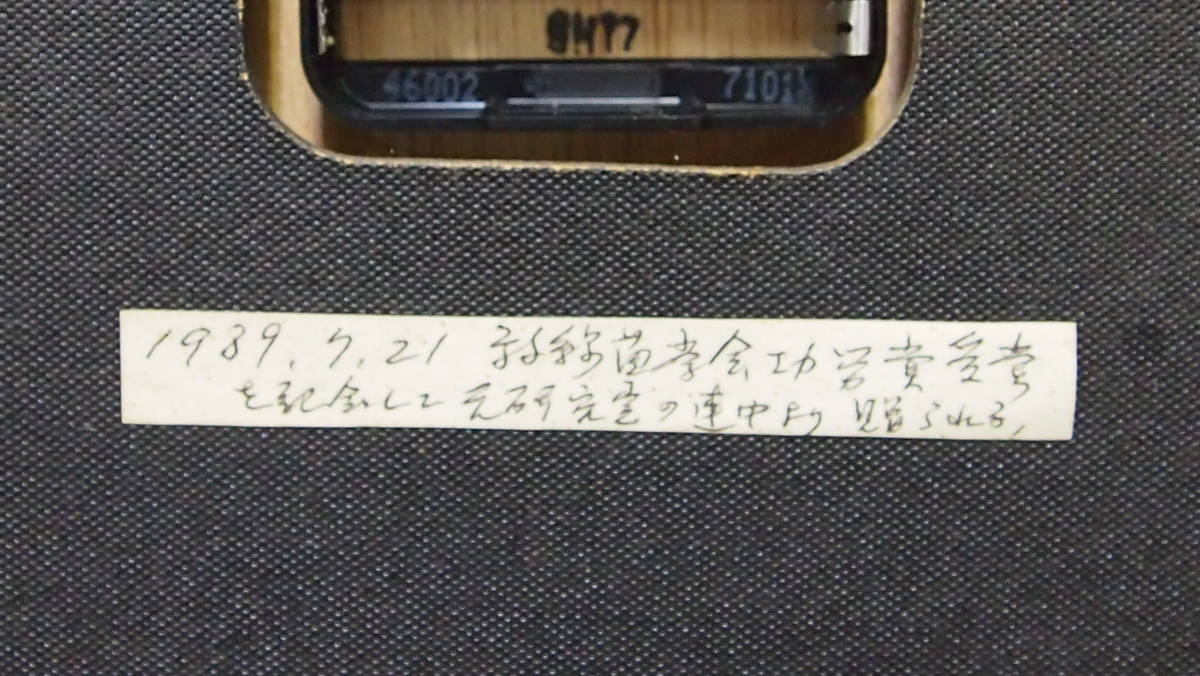 8HT7
46002
7101
1989.7.21 蚕種苗学会功労賞受賞
を記念して元研究室の連中より贈られる,